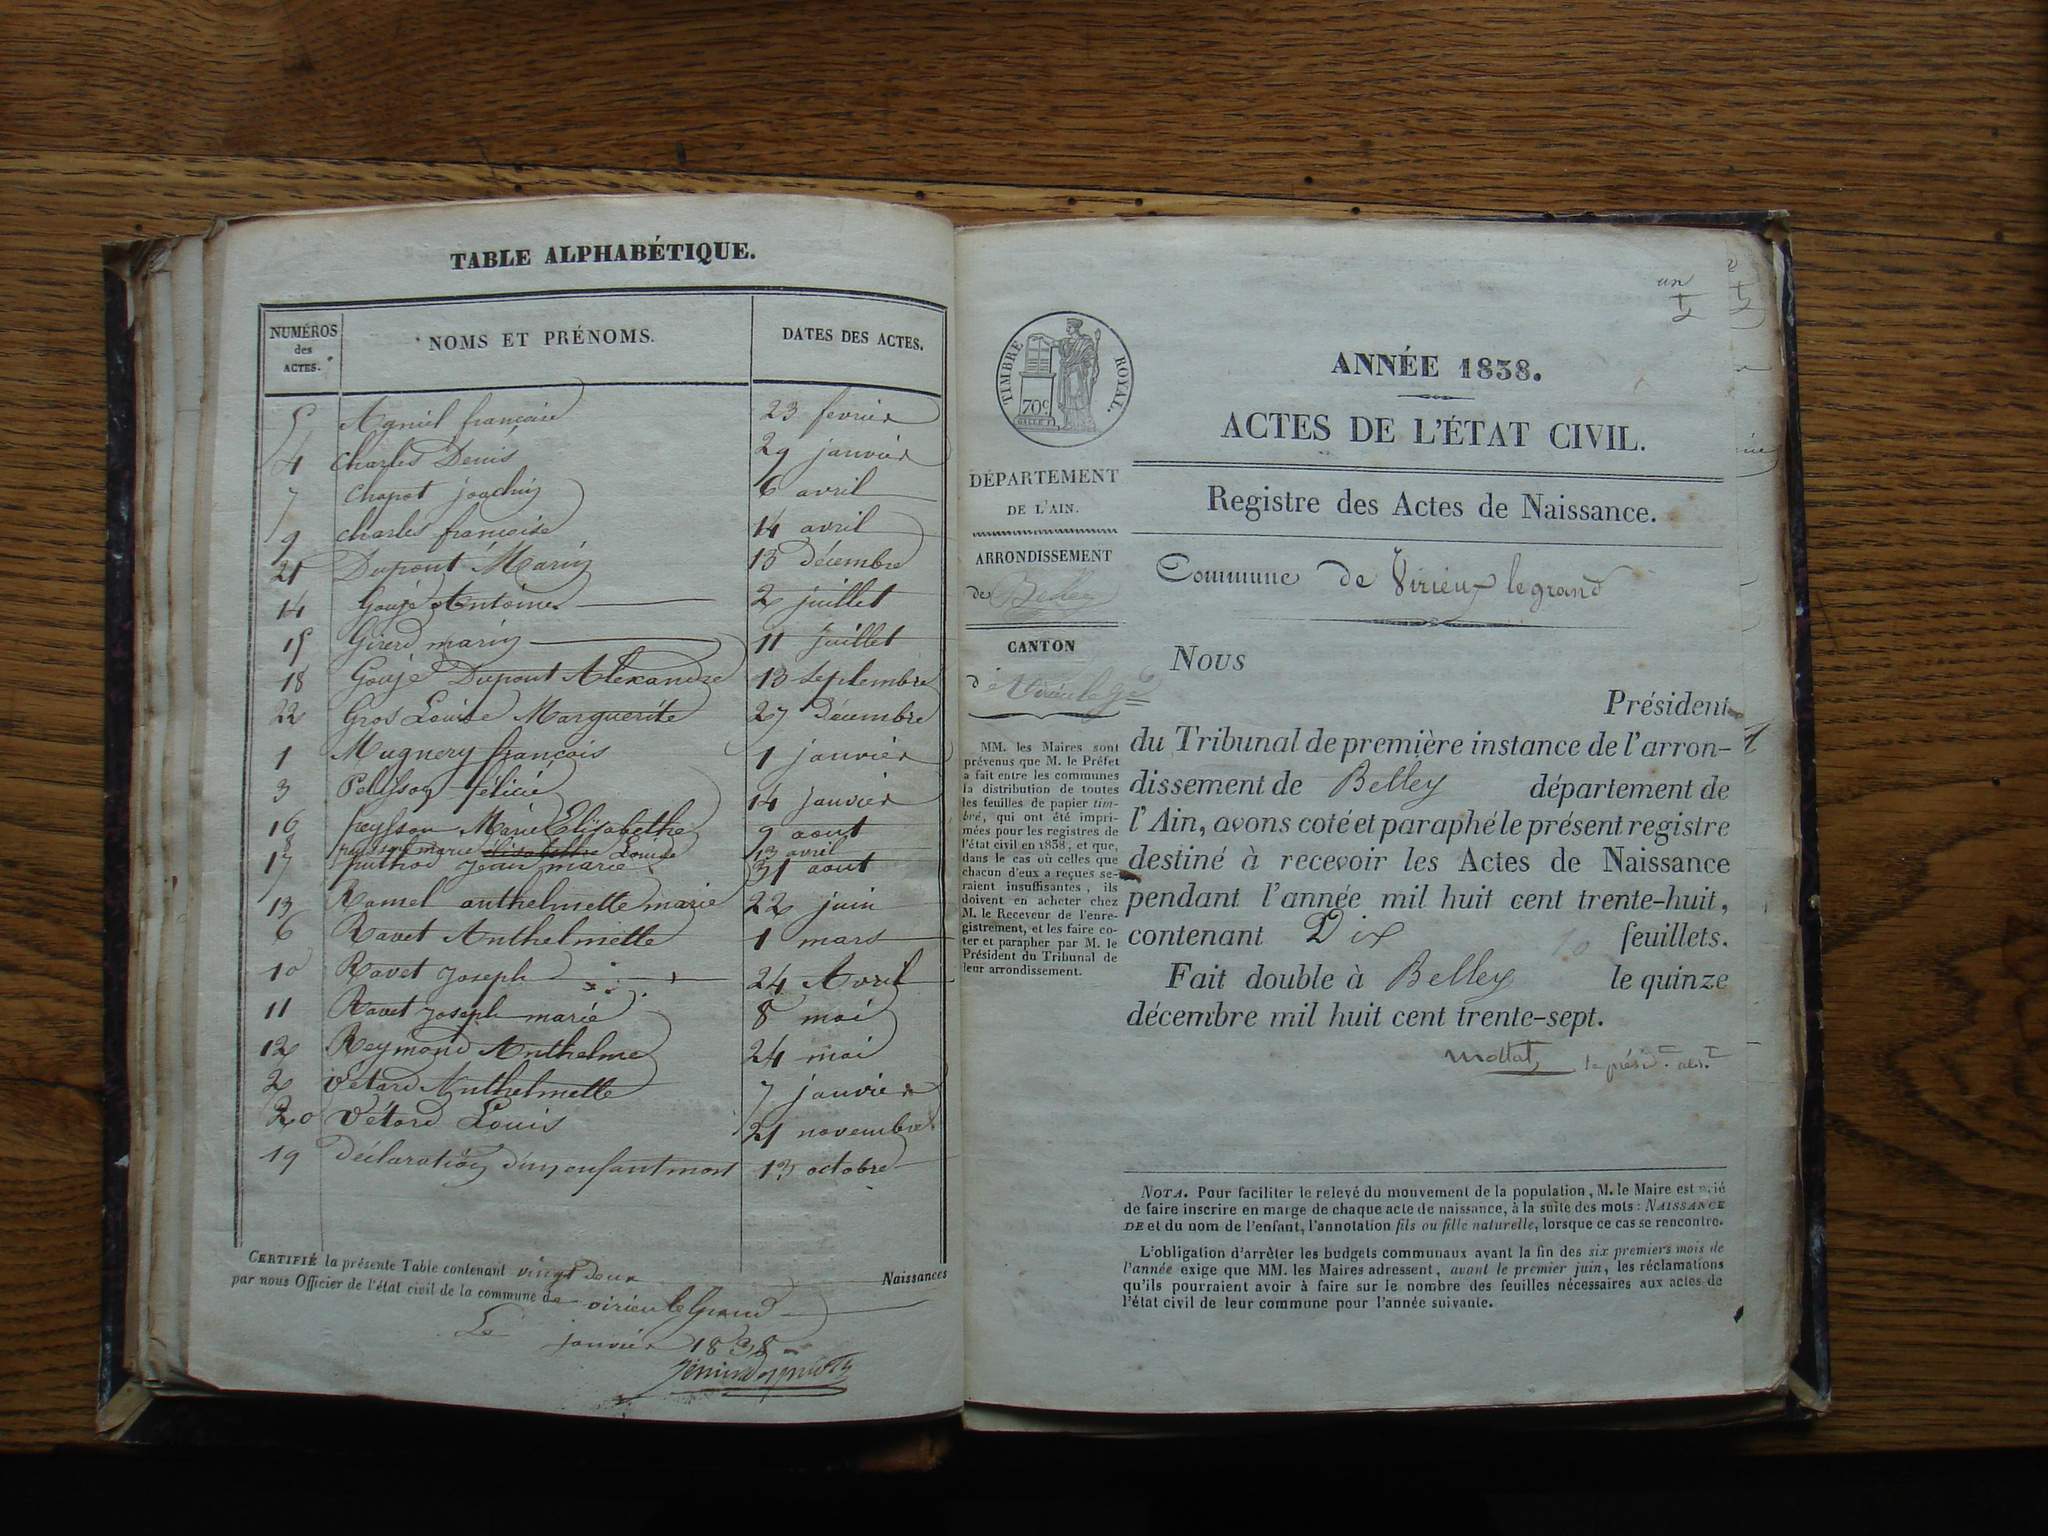 TABLE ALPHABÉTIQUE.
NUMÉROS des ACTES. NOMS ET PRÉNOMS. DATES DES ACTES.
5 Agniel françoise 23 fevrier
4 Charles Denis 29 janvier
7 Chapot joachin 6 avril
9 charles françoise 14 avril
21 Dupont Marin 13 décembre
14 Goujé Antoine 2 juillet
15 Girerd marin 11 juillet
18 Goujé Dupont Alexandre 13 Septembre
22 Gros Louise Marguerite 27 Décembre
1 Mugnery françois 1 janvier
3 Pellisson félicie 14 janvier
16 peysson Marie Elisabethe 9 aout
8 marie elisabethe Louise 13 avril
17 puthod jean marie 31 aout
13 Ramel anthelmette marie 22 juin
6 Ravet Anthelmette 1 mars
10 Ravet Joseph 24 Avril
11 Ravet Joseph marie 8 mai
12 Reymond Anthelme 24 mai
2 Vétard Anthelmette 7 janvier
20 Vétard Louis 21 novembre
19 Déclaration d'un enfant mort 13 octobre
CERTIFIÉ la présente Table contenant vingt deux Naissances
par nous Officier de l'état civil de la commune de virieu le Grand
Le janvier 1838
un
TIMBRE ROYAL.
70c
DÉPARTEMENT
DE L'AIN.
ARRONDISSEMENT
de Belley
CANTON
d
MM. les Maires sont
prévenus que M. le Préfet
a fait entre les communes
la distribution de toutes
les feuilles de papier tim-
bré, qui ont été impri-
mées pour les registres de
l'état civil en 1838, et que,
dans le cas où celles que
chacun d'eux a reçues se-
raient insuffisantes, ils
doivent en acheter chez
M. le Receveur de l'enre-
gistrement, et les faire co-
ter et parapher par M. le
Président du Tribunal de
leur arrondissement.
ANNÉE 1838.
ACTES DE L'ÉTAT CIVIL.
Registre des Actes de Naissance.
Commune de Virieux legrand
Nous
Président
du Tribunal de première instance de l'arron-
dissement de Belley département de
l'Ain, avons coté et paraphé le présent registre
destiné à recevoir les Actes de Naissance
pendant l'année mil huit cent trente-huit,
contenant Dix 10 feuillets.
Fait double à Belley le quinze
décembre mil huit cent trente-sept.
NOTA. Pour faciliter le relevé du mouvement de la population, M. le Maire est prié
de faire inscrire en marge de chaque acte de naissance, à la suite des mots: NAISSANCE
DE et du nom de l'enfant, l'annotation fils ou fille naturelle, lorsque ce cas se rencontre.
L'obligation d'arrêter les budgets communaux avant la fin des six premiers mois de
l'année exige que MM. les Maires adressent, avant le premier juin, les réclamations
qu'ils pourraient avoir à faire sur le nombre des feuilles nécessaires aux actes de
l'état civil de leur commune pour l'année suivante.